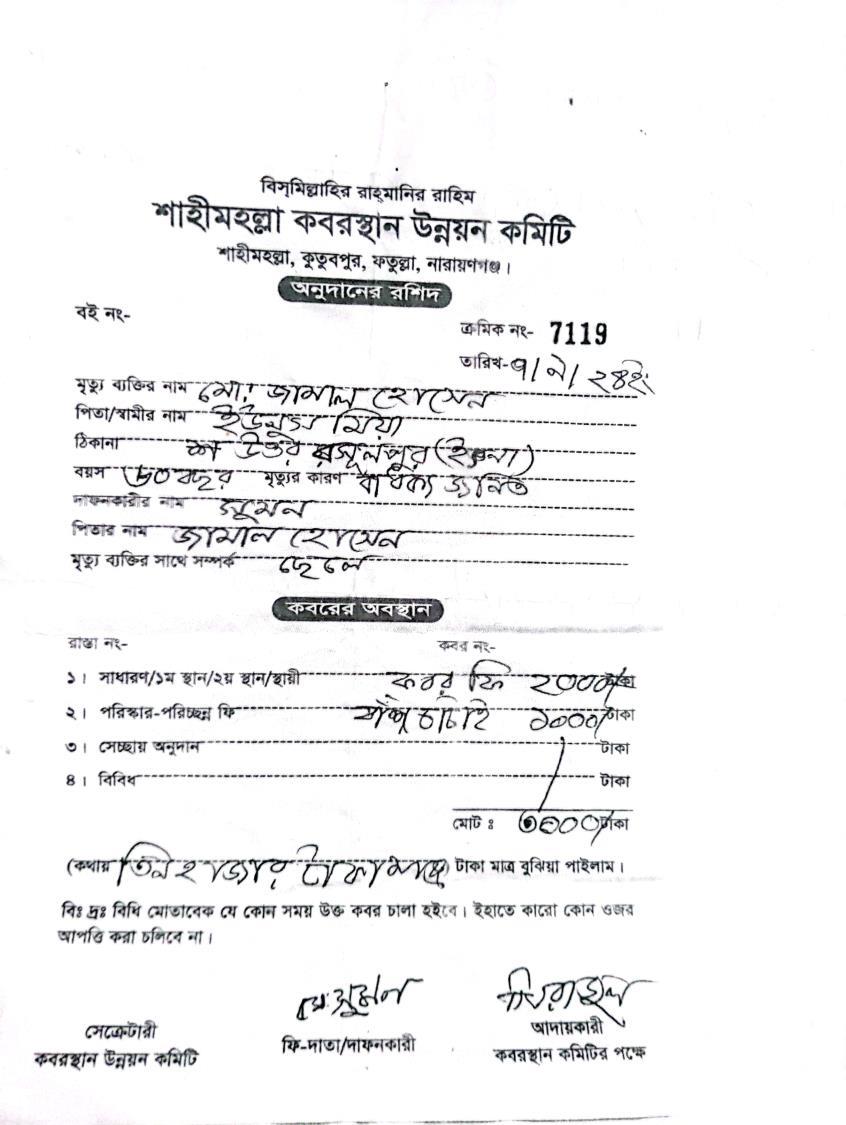 বিস্‌মিল্লাহির রাহ্‌মানির রাহিম
শাহীমহল্লা কবরস্থান উন্নয়ন কমিটি
শাহীমহল্লা, কুতুবপুর, ফতুল্লা, নারায়ণগঞ্জ।
অনুদানের রশিদ
বই নং-
ক্রমিক নং- 7119
তারিখ- ৭/৯/২৪ইং
মৃত্যু ব্যক্তির নাম মোঃ জামাল হোসেন
পিতা/স্বামীর নাম ইউনুস মিয়া
ঠিকানা উত্তর রসূলপুর
বয়স ৬০ বছর মৃত্যুর কারণ বার্ধক্য জনিত
দাফনকারীর নাম সুমন
পিতার নাম জামাল হোসেন
মৃত্যু ব্যক্তির সাথে সম্পর্ক ছেলে
কবরের অবস্থান
রাস্তা নং- কবর নং-
১। সাধারণ/১ম স্থান/২য় স্থান/স্থায়ী কবর ফি ২০০০/ টাকা
২। পরিস্কার-পরিচ্ছন্ন ফি চাটাই ১০০০/ টাকা
৩। সেচ্ছায় অনুদান টাকা
৪। বিবিধ টাকা
মোট ঃ ৩০০০/ টাকা
(কথায় তিন হাজার টাকা মাত্র) টাকা মাত্র বুঝিয়া পাইলাম।
বিঃ দ্রঃ বিধি মোতাবেক যে কোন সময় উক্ত কবর চালা হইবে। ইহাতে কারো কোন ওজর
আপত্তি করা চলিবে না।
মোঃ সুমন
সেক্রেটারী
কবরস্থান উন্নয়ন কমিটি
ফি-দাতা/দাফনকারী
আদায়কারী
কবরস্থান কমিটির পক্ষে